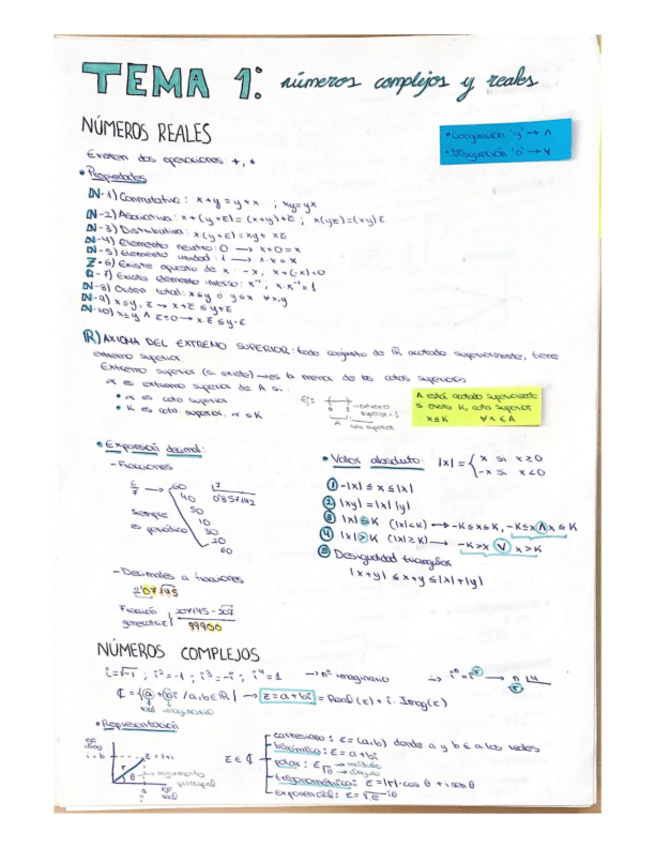 TEMA 1: números complejos y reales
NÚMEROS REALES
• Conjunción 'y' → ∧
• Disyunción 'o' → ∨
Existen dos operaciones: +, ·
• Propiedades
N-1) Conmutativa: x+y=y+x ; xy=yx
N-2) Asociativa: x+(y+z)=(x+y)+z ; x(yz)=(xy)z
N-3) Distributiva: x(y+z)=xy+xz
N-4) Elemento neutro: 0 → x+0=x
N-5) Elemento unidad: 1 → 1·x=x
Z-6) Existe opuesto de x: -x, x+(-x)=0
Q-7) Existe elemento inverso: x⁻¹, x·x⁻¹=1
N-8) Orden total: x≤y ó y≤x ∀x,y
N-9) x≤y, z → x+z≤y+z
N-10) x≤y ∧ z≥0 → x·z≤y·z
R) AXIOMA DEL EXTREMO SUPERIOR: todo conjunto de R acotado superiormente, tiene
extremo superior.
Extremo superior (si existe) → es la menor de las cotas superiores
α es extremo superior de A si:
• α es cota superior
• K es cota superior, α≤K
Ej: 0 1 → extremo superior = 1
A cota superior
A está acotado superiormente
si existe K, cota superior
x≤K ∀x∈A
• Expansión decimal:
- Fracciones
6/7 → 60 |7
40 0'857142
50
10
30
20
60
Siempre
es periódico
- Decimales a fracciones
Fracción
generatriz
99900
• Valor absoluto: |x|= { x si x≥0
-x si x<0
① -|x|≤x≤|x|
② |xy|=|x||y|
③ |x|≤K (|x|<K) → -K≤x≤K, -K≤x ∧ x≤K
④ |x|>K (|x|≥K) → -K>x ∨ x>K
⑤ Desigualdad triangular
|x+y|≤x+y≤|x|+|y|
NÚMEROS COMPLEJOS
i=√-1 ; i²=-1 ; i³=-i ; i⁴=1 → nº imaginario → iⁿ=i → n |4
ℂ={a+bi /a,b∈R} → z=a+bi = Real(z)+i·Imag(z)
real imaginario
• Representación
eje imag
i·b
z=|r|
r θ
argumento
principal
a
eje real
z∈ℂ
cartesiana: z=(a,b) donde a y b ∈ a los reales
binómica: z=a+bi
polar: → módulo
→ ángulo
trigonométrica: z=|r|·cos θ + i sen θ
exponencial: